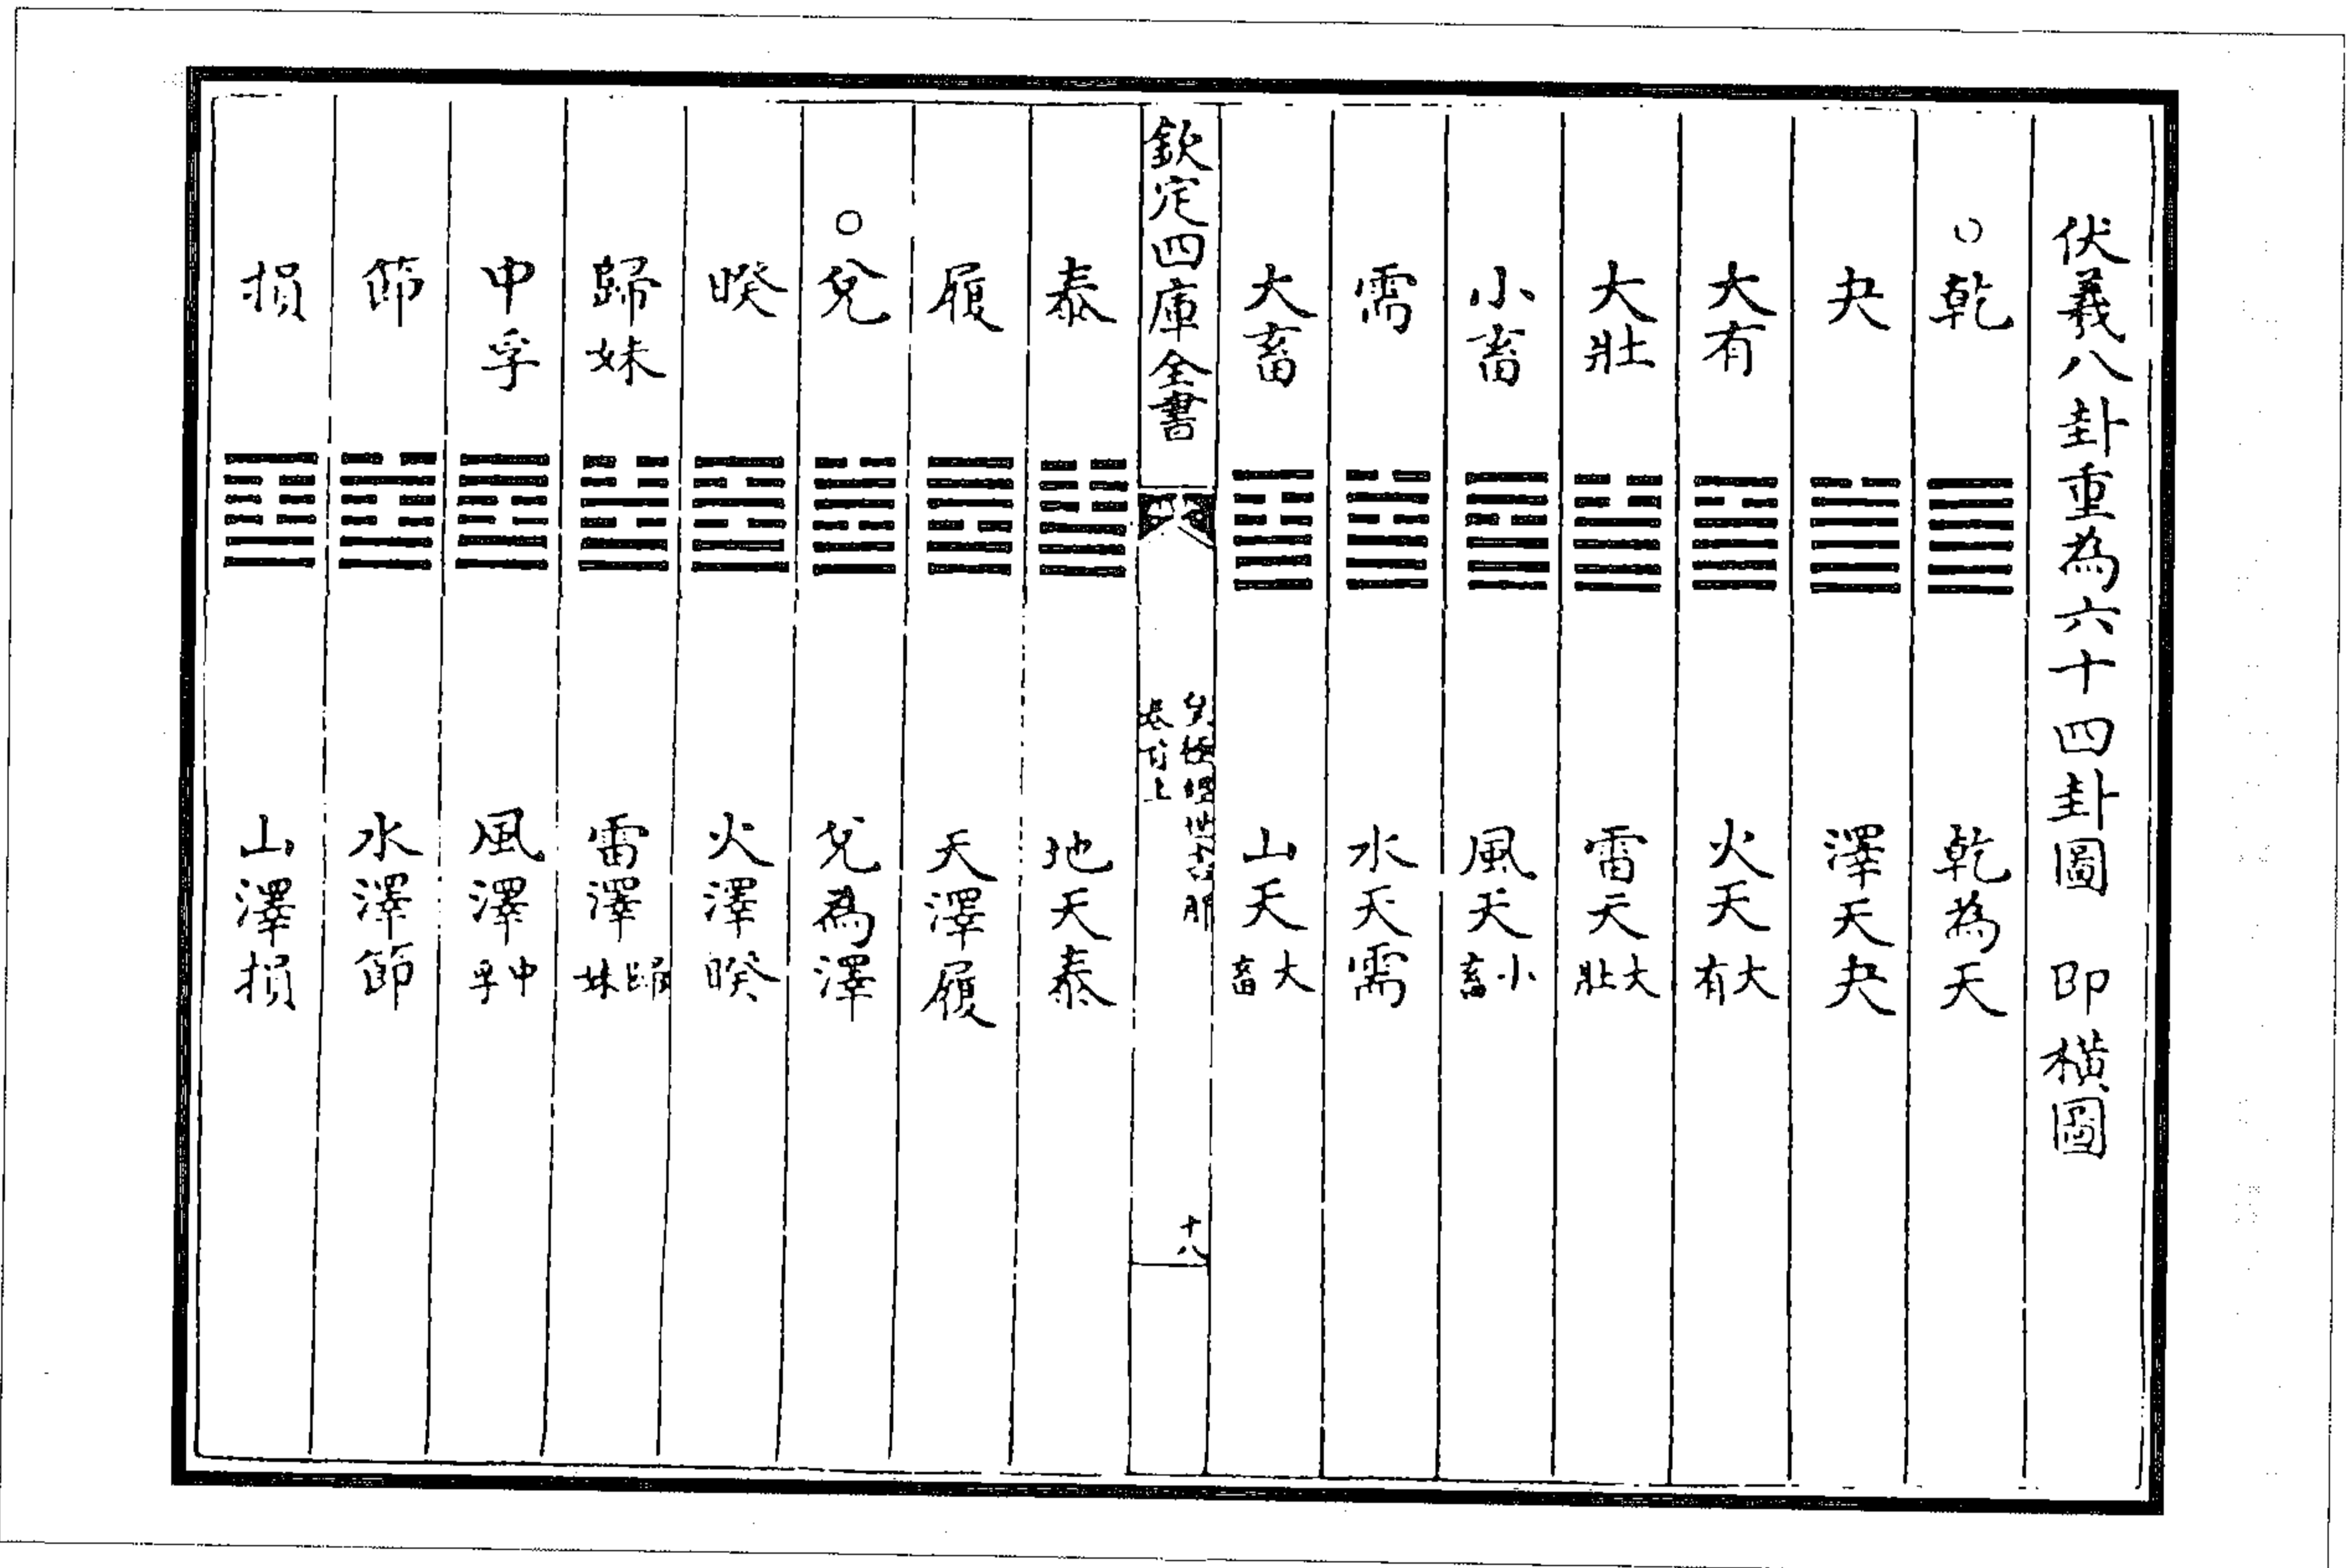 伏羲八卦重為六十四卦圖 即橫圖
○乾 乾為天
夬 澤天夬
大有 火天大有
大壯 雷天大壯
小畜 風天小畜
需 水天需
大畜 山天大畜
欽定四庫全書
皇極經世書解
卷首上
十八
泰 地天泰
履 天澤履
○兌 兌為澤
睽 火澤睽
歸妹 雷澤歸妹
中孚 風澤中孚
節 水澤節
損 山澤損